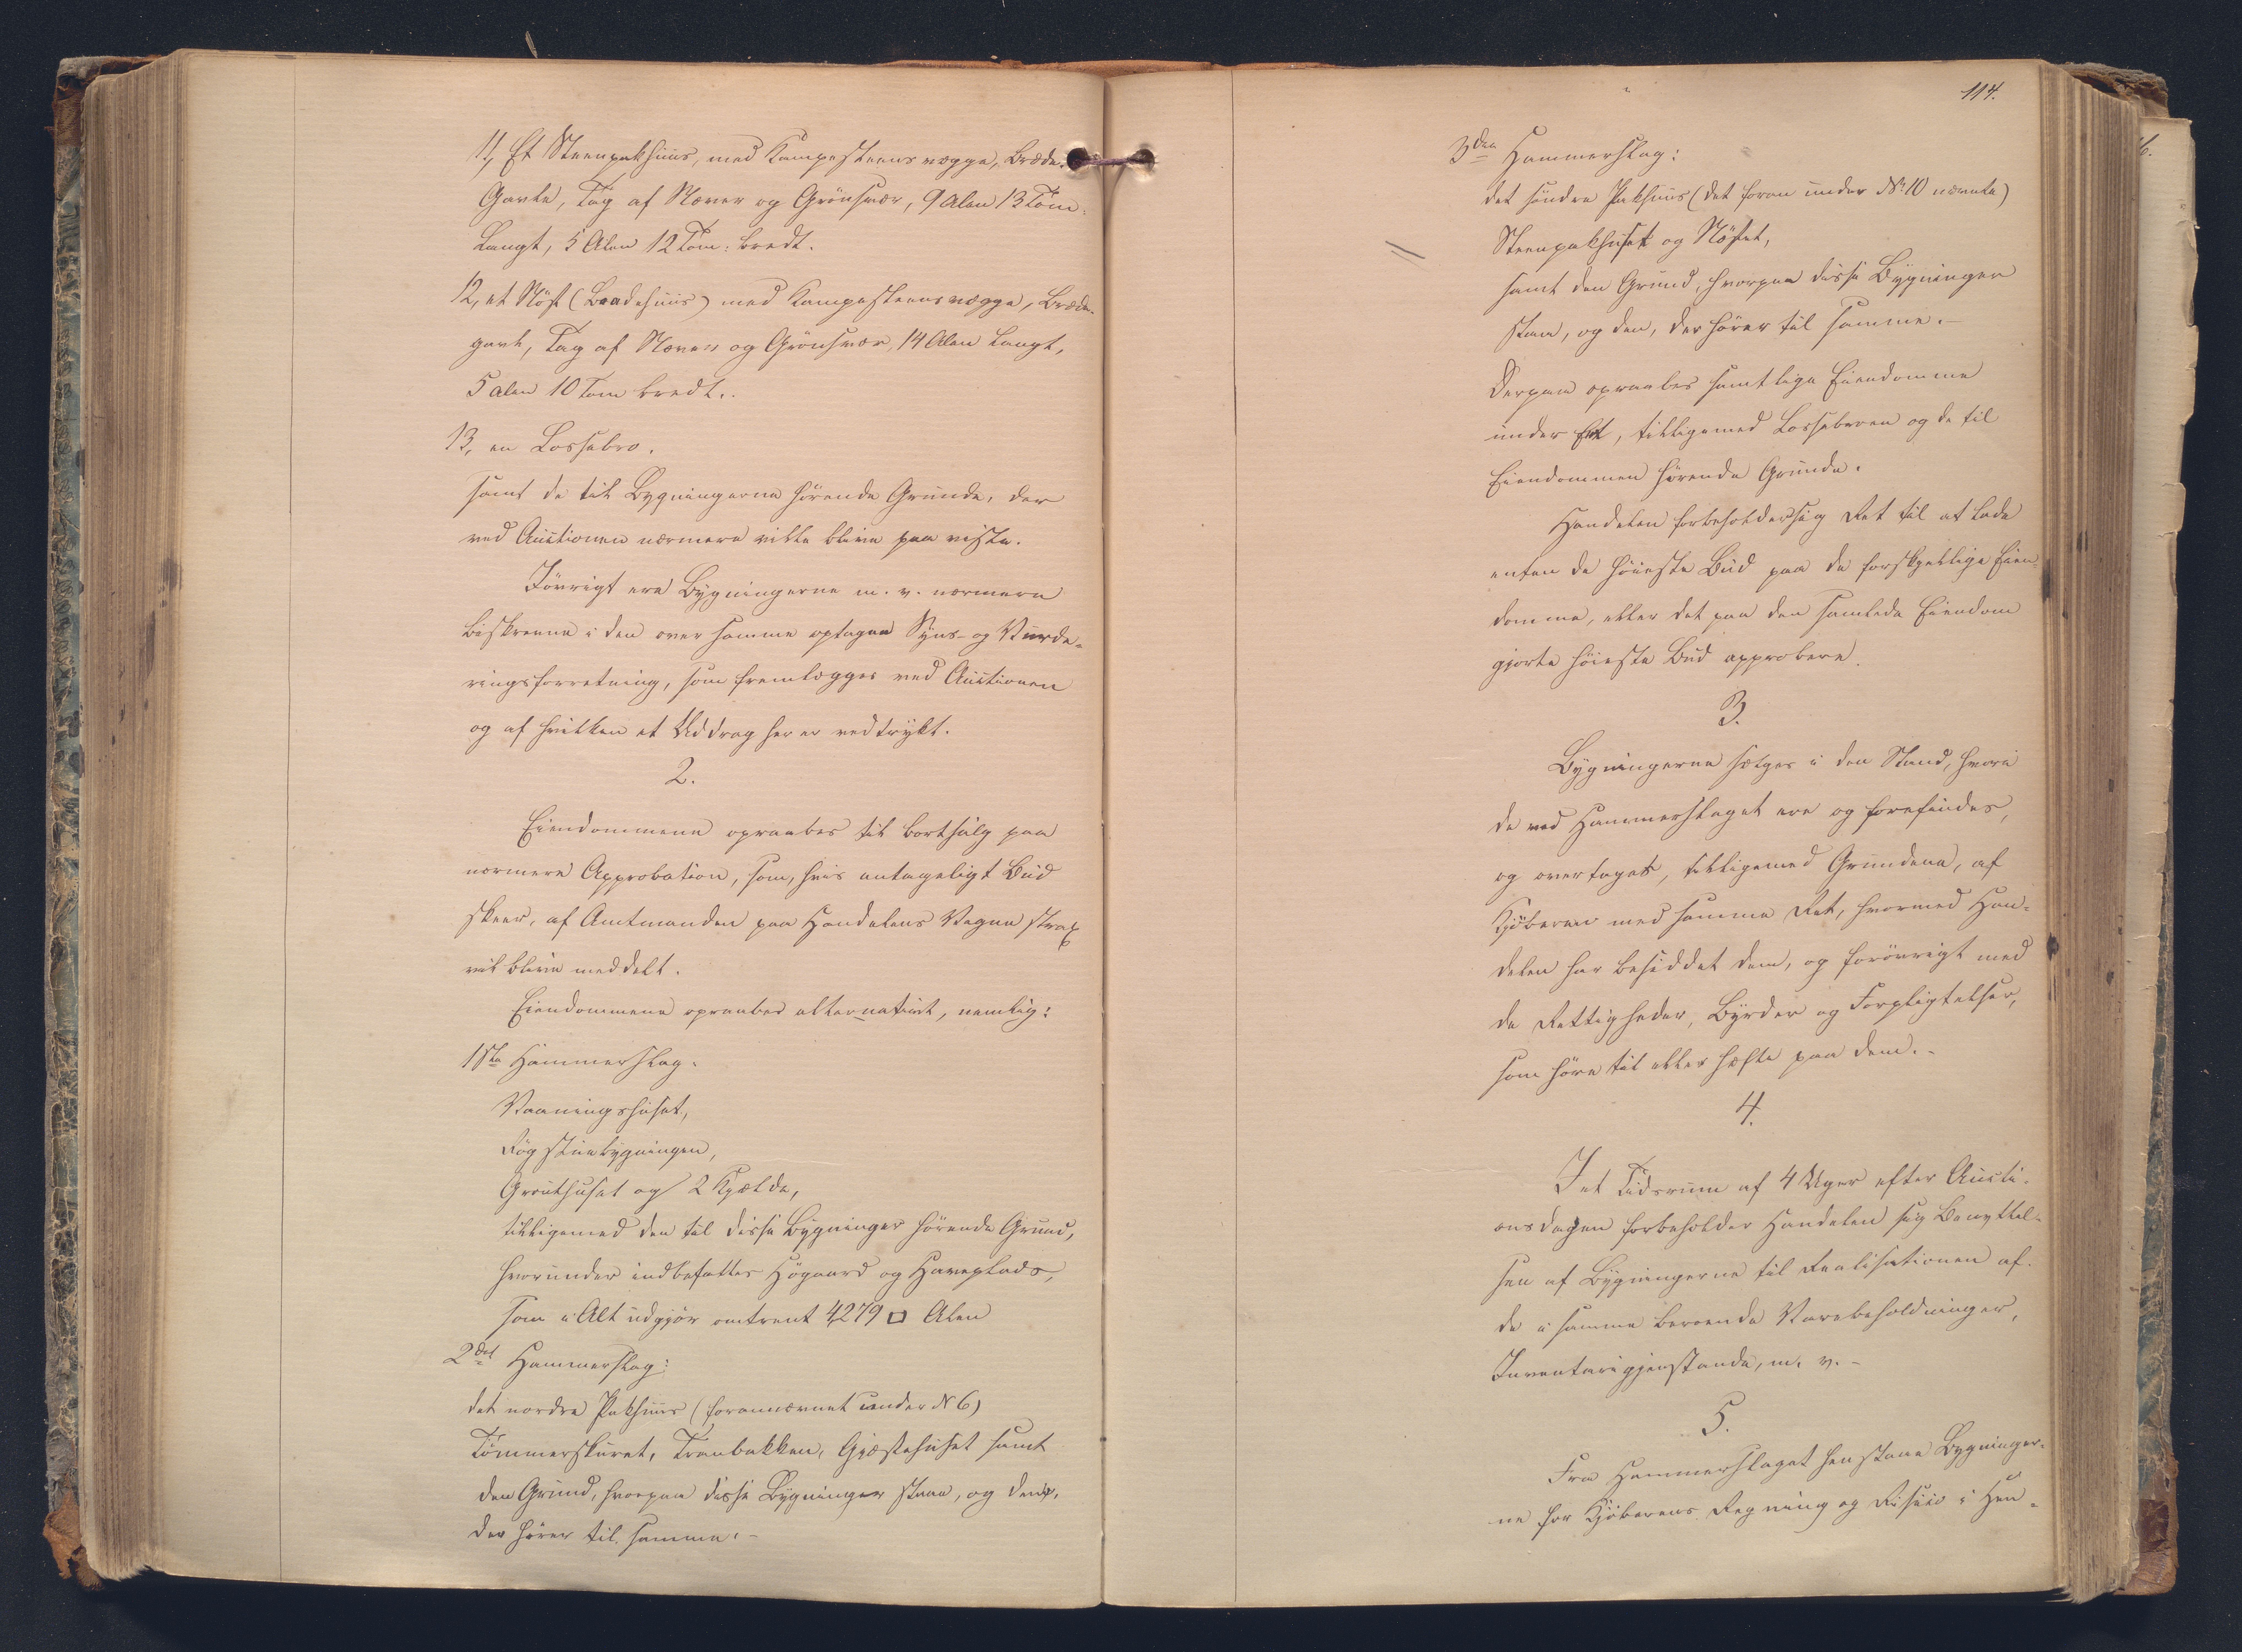 11, Et Steenpakhuus, med Kampesteensvægge, Bræde-
Gavle, Tag af Næver og Grönsvær, 9 Alen 13 Tom:
Langt, 5 Alen 12 Tom: bredt.
12, et Nöst (Baadehuus) med Kampesteensvægge, Bræde-
gavl, Tag af Næver og Grönsvær, 14 Alen Langt,
5 Alen 10 Tom bredt..
13, en Lossebro.
samt de til Bygningerne hörende Grunde, der
ved Auctionen nærmere ville blive paaviste.
Iövrigt ere Bygningerne m. v. nærmere
beskrevne i den over samme optagne Syns- og Vurde-
ringsforretning, som fremlægges ved Auctionen
og af hvilken et Uddrag her er vedtrykt.
2.
Eiendommene opraabes til Bortsalg paa
nærmere Approbation, som, hvis antageligt Bud
skeer, af Amtmanden paa Handelens Vegne strax
vil blive meddelt.
Eiendommene opraabes alternativt, nemlig:
1ste Hammerslag.
Vaaningshuset,
Rögstuebygningen,
Grouthuset og 2 Kjælde,
tilligemed den til disse Bygninger hörende Grund,
hvorunder indbefattes Högaard og Haveplads,
som i Alt udgjör omtrent 4279 □ Alen
2det Hammerslag:
det nordre Pakhuus (forannævnet under N 6)
Tömmerskuret, Tranbakken, Gjæstehuset samt
den Grund, hvorpaa disse Bygninger staae, og den,
der hörer til samme.-
114.
3die Hammerslag:
det söndre Pakhuus (det foran under No 10 nævnte)
Steenpakhuset og Nöstet,
samt den Grund, hvorpaa disse Bygninger
staae, og den, der hörer til samme.-
Derpaa opraabes samtlige Eiendomme
under Eet, tilligemed Lossebroen og de til
Eiendommen hörende Grunde.
Handelen forbeholder sig Ret til at lade
enten de höieste Bud paa de forskjellige Eien-
domme, eller det paa den samlede Eiendom
gjorte höieste Bud approbere.
3.
Bygningerne sælges i den Stand, hvori
de ved Hammerslaget ere og forefindes,
og overtages, tilligemed Grundene, af
Kjöberen med samme Ret, hvormed Han-
delen har besiddet dem, og forövrigt med
de Rettigheder, Byrder og Forpligtelser,
som höre til eller hæfte paa dem.-
4.
I et Tidsrum af 4 Uger efter Aucti-
onsdagen forbeholder Handelen sig Benyttel-
sen af Bygningerne til Realisationen af
de i samme beroende Varebeholdninger,
Inventariigjenstande, m. v.-
5.
Fra Hammerslaget henstaae Bygninger-
ne for Kjöberens Regning og Risico i Hen-